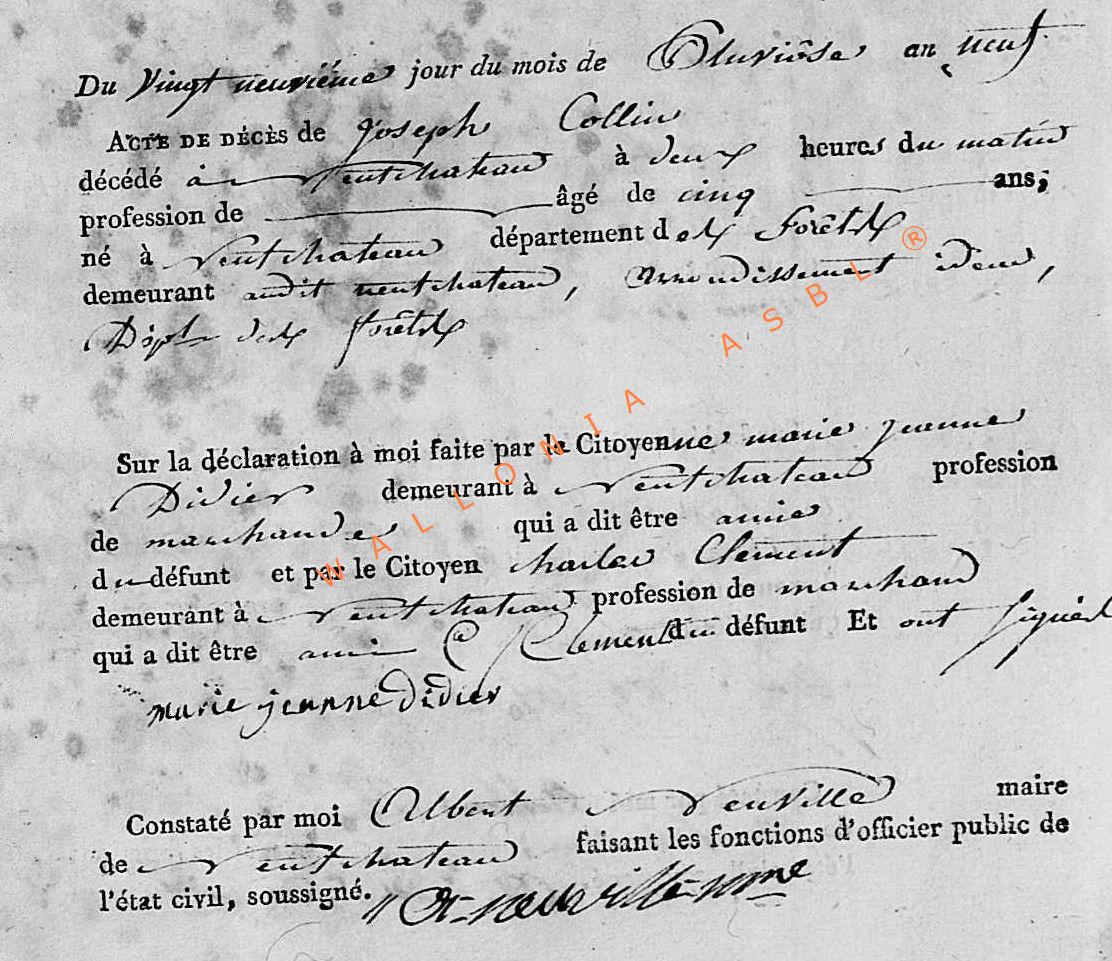 Du Vingt neuvième jour du mois de Pluviôse an neuf
ACTE DE DÉCÈS de Joseph Collin
décédé à Neufchateau à deux heures du matin
profession de âgé de cinq ans;
né à Neufchateau département des Forêts
demeurant audit neufchateau, arrondissement idem,
Dépt des forêts
Sur la déclaration à moi faite par la Citoyenne marie jeanne
Didier demeurant à Neufchateau profession
de marchande qui a dit être amie
du défunt et par le Citoyen charles Clement
demeurant à Neufchateau profession de marchand
qui a dit être ami C Clement du défunt Et ont signés
marie jeanne didier
Constaté par moi Albert Neuville maire
de Neufchateau faisant les fonctions d'officier public de
l'état civil, soussigné. A neuville
WALLONIA ASBL ®